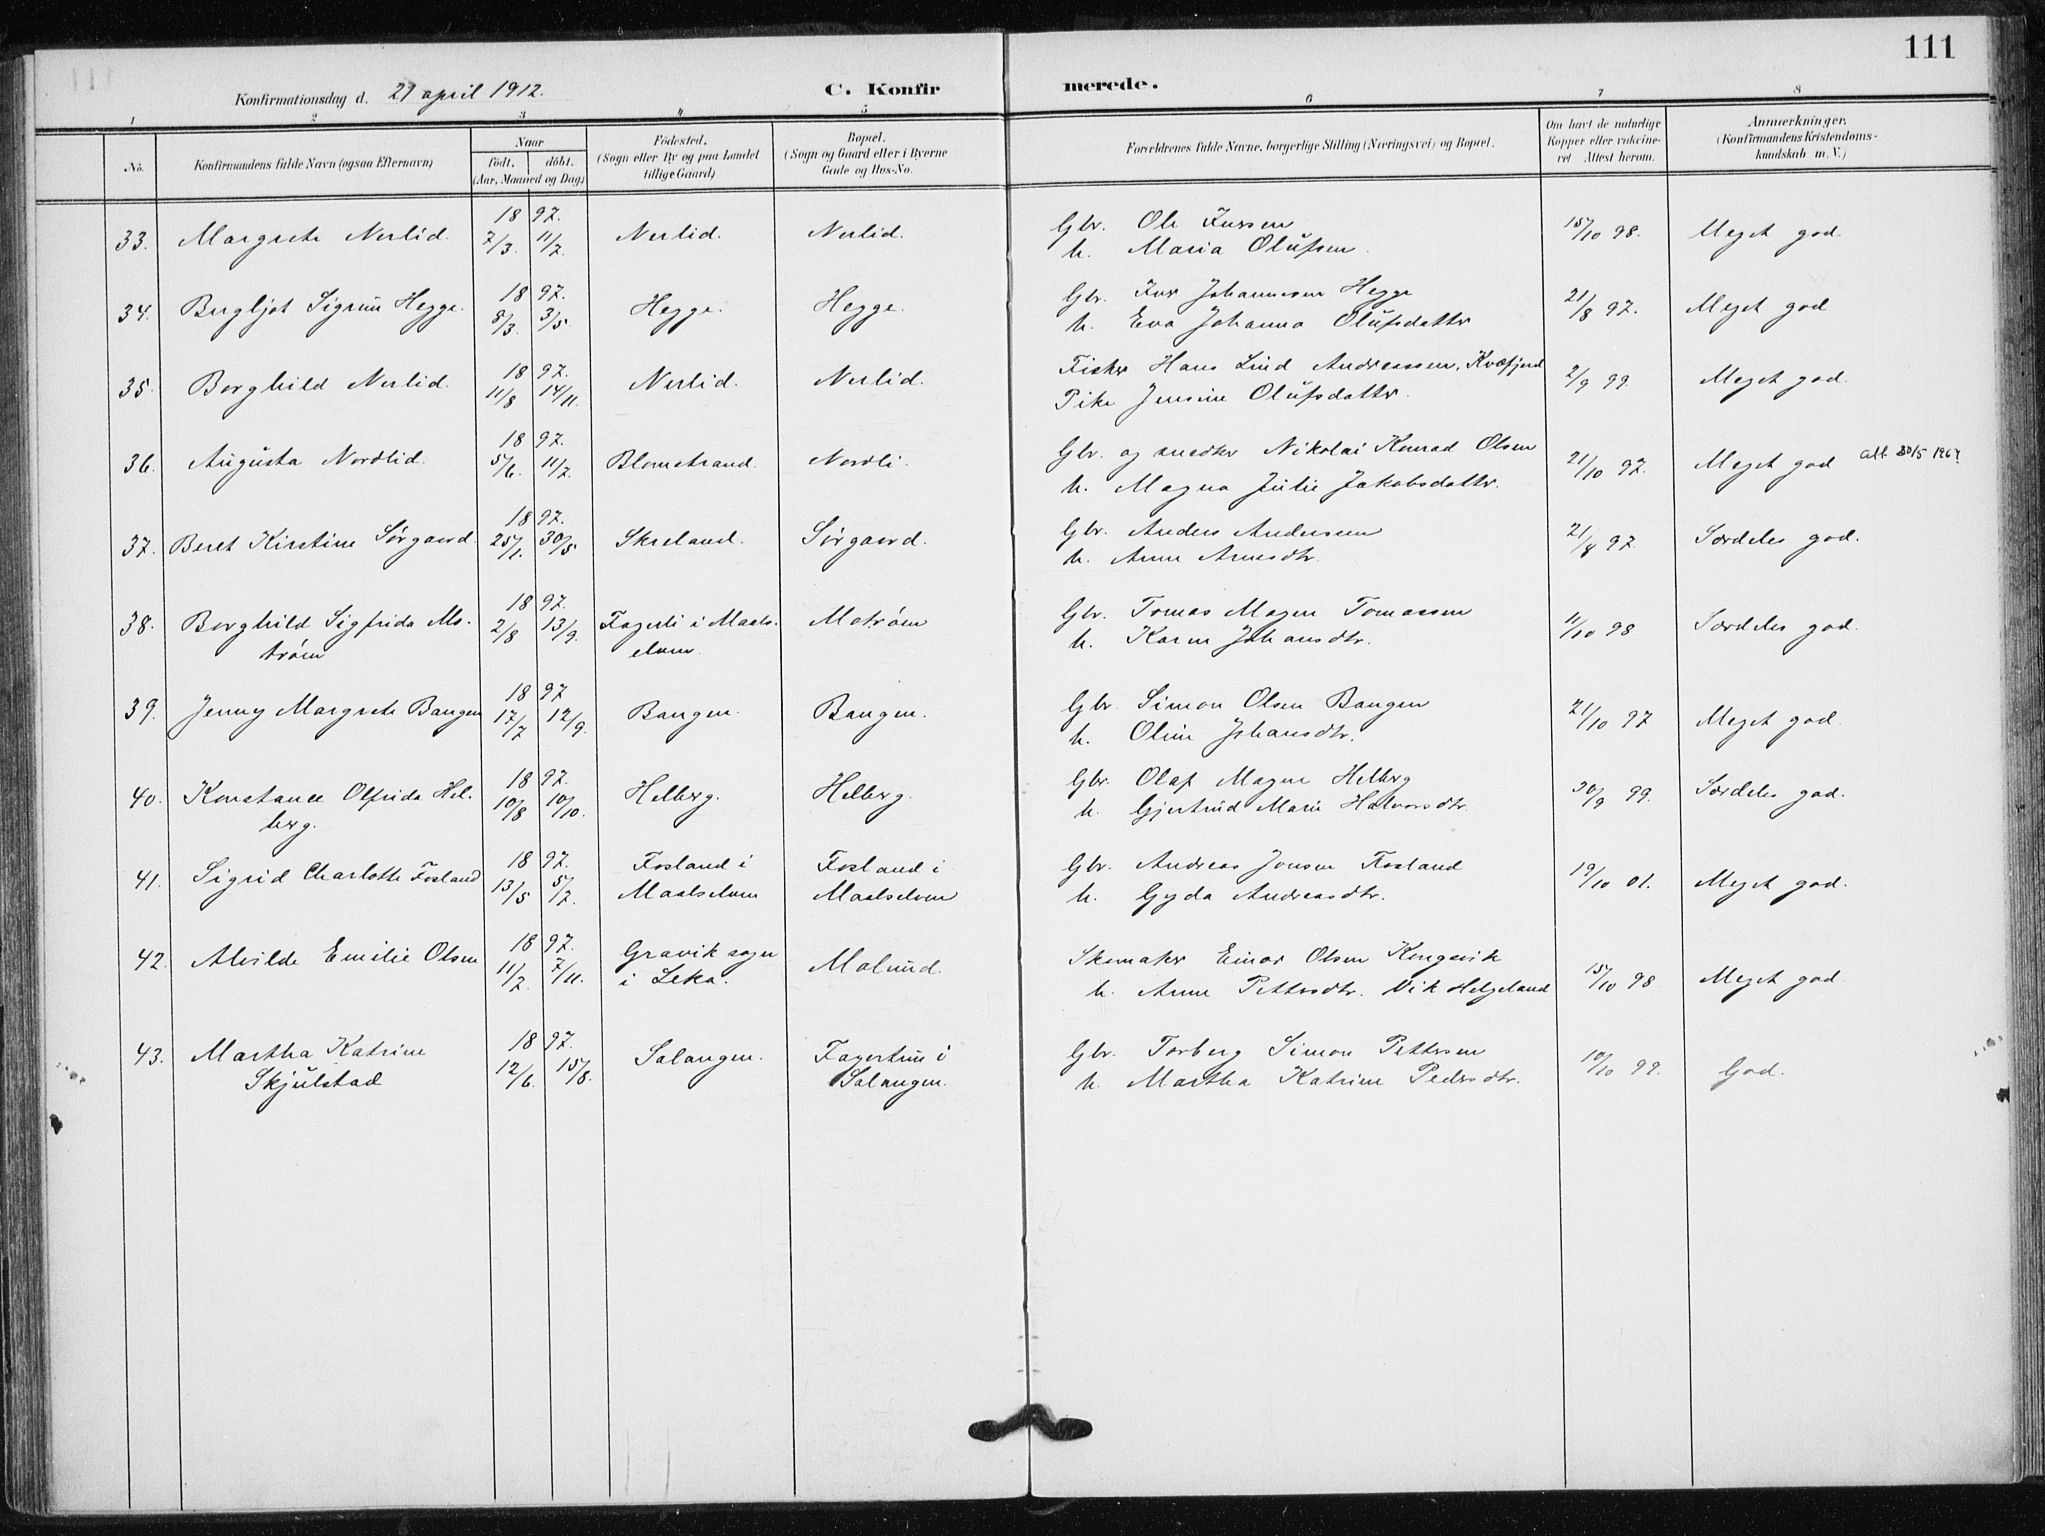 111
Konfirmationsdag d. 21 april 1912.
C. Konfirmerede.
1 2 3 4 5 6 7 8
No.
Konfirmandens fulde Navn (ogsaa Efternavn)
Naar
født. døbt.
(Aar, Maaned og Dag)
Fødested.
(Sogn eller By og paa Landet
tillige Gaard)
Bopæl.
(Sogn og Gaard eller i Byerne
Gade og Hus-No.
Forældrenes fulde Navne, borgerlige Stilling (Næringsvei) og Bopæl.
Om havt de naturlige
Kopper eller vakcine-
ret Attest herom.
Anmærkninger.
(Konfirmandens Kristendoms-
kundskab m. V.)
18 97.
33. Margrete Nerlid. 7/3. 11/7. Nerlid. Nerlid. Gbr. Ole 15/10 98. Meget god.
h. Maria Olufsen.
18 97.
34. Bergljot Sigrun Hegge. 8/3. 3/5. Hegge. Hegge. Gbr. Johannesen Hegge 21/8 97. Meget god
h. Eva Johanna Olufsdatter
18 97.
35. Borghild Nerlid. 11/8 14/11. Nerlid. Nerlid. Fisker Hans Lind Andreassen, Kvæfjord 2/9 99. Meget god.
Pike Jensine Olufsdatter.
18 97.
36. Augusta Nordlid. 5/6. 11/7. Blomstrand. Nordli. Gbr. og snedker Nikolai Konrad Olsen 21/10 97. Meget god att. 30/5 1967
h. Magna Julie Jakobsdatter.
18 97.
37. Beret Kirstine Sørgaard. 25/1. 30/5 Skreland. Sørgaard. Gbr. Anders Andersen 21/8 97. Særdeles god.
h. Anne Arnesdtr.
18 97.
38. Borghild Sigfrida Mo- 2/8 13/9. Fagerli i Maals- Mostrøm Gbr. Tomas Magen Tomassen 11/10 98 Særdeles god.
strøm elven. h. Karen Johansdtr.
18 97
39. Jenny Margrete Bangen 17/7 12/9. Bangen. Bangen. Gbr. Simon Olsen Bangen 21/10 97 Meget god.
h. Oline Johansdtr.
18 97.
40. Konstance Olfrida Hel- 10/8 10/10. Helberg. Helberg. Gbr. Olaf Magne Helberg 30/9 99. Særdeles god.
berg. h. Gjertrud Marie Halvorsdtr.
18 97.
41. Sigrid Charlotte Fosland 13/5 5/7. Fosland i Fosland i Gbr. Andreas Jonsen Fosland 19/10 01. Meget god.
Maalselven Maalselven h. Gyda Andreasdtr.
18 97.
42. Alvilde Emilie Olsen 11/7. 7/11. Gravik sogn Molund. Skomaker Einar Olsen Kongsvik 15/10 98 Meget god.
i Leka. h. Anne Pettersdtr. Vik Helgeland
18 97.
43. Martha Katrine 12/6. 15/8. Salangen. Fagertun i Gbr. Torberg Simon Pettersen 10/10 99. God.
Skjulstad Salangen. h. Martha Katrine Pedersdtr.